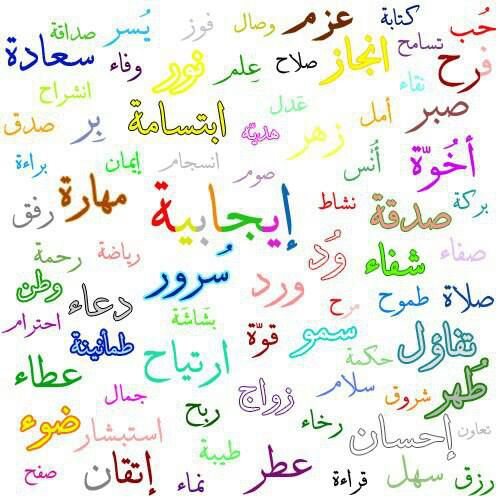 حُب كتابة عزم وصال فوز يُسر صداقة
فرح تسامح انجاز صلاح عِلم نور وفاء سعادة
نقاء
صبر أمل زهر عَدل هديّة ابتسامة بِر انشراح صدق
أُخُوّة أُنْس صوم انسجام إيمان براءة
بركة صدقة نشاط إيجابية مهارة رفق
صفاء شفاء وُد ورد سُرور رياضة رحمة وطن
صلاة طموح مرح بَشاشَة دعاء احترام
تفاؤل حكمة سمو قوّة ارتياح طمأنينة عطاء
طُهر شروق سلام زواج ربح جمال ضوء
تعاون إحسان رخاء طيبة استبشار
رزق سهل قراءة عطر نماء إتقان صفح